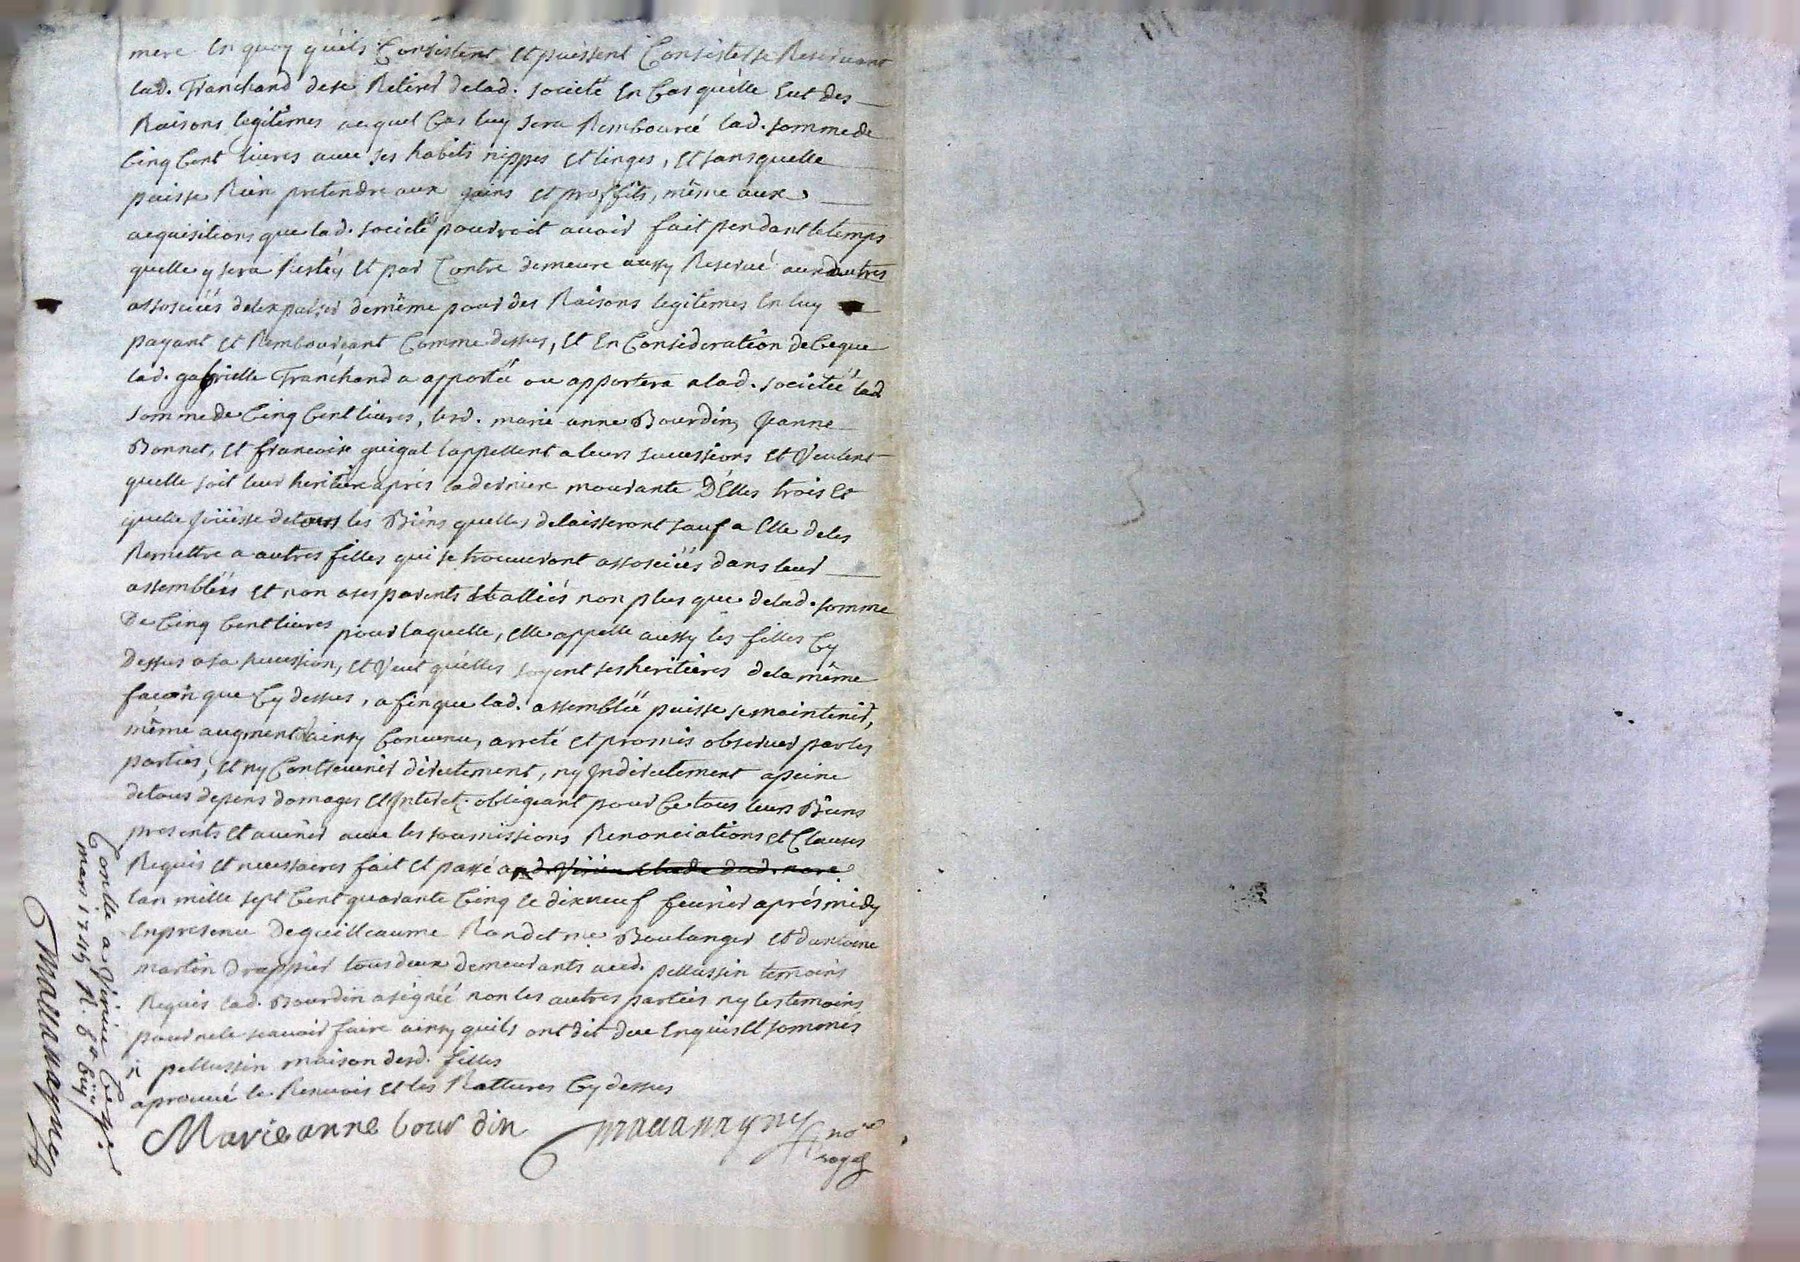 mere En quoy quéils Consistent Et puissent Consister se Reservant
lad. Franchand de se Retirer de lad. société En Cas quélle Eut des
Raisons legitimes auquel Cas luy sera Rembourcé lad. somme de
Cinq Cent livres avec ses habits nippes Et linges, Et sans quelle
puisse Rien pretendre aux gains Et proffits, même aux
acquisitions que lad. société pourroit avoir fait pendant le temps
quelle y sera Restéy Et par Contre demeure aussy Reservé aux autres
associéés de lexpulser de même pour des Raisons legitimes En luy
payant Et Rembourçant Comme dessus, Et En Consideration de Ce que
lad. gabrielle Franchand a apporté ou apportera a lad. societéé lad
somme de Cinq Cent livres, lesd. marie anne Bourdin, Jeanne
Bonnet, Et francoise guigal lappellent a leurs sucessions Et Veulent
quelle soit leur heritiere aprés la derniere mourante D'Elles trois Et
quelle joüisse de tous les Biéns quelles delaisseront sauf a Elle de les
Remettre a autres filles qui se trouveront associéés dans leur
assembléés Et non a ses parents Et alliés non plus que de lad. somme
De Cinq Cent livres pour laquelle, Elle appelle aussy les filles Cy
Dessus a sa sucession, Et Veut quélles soyent ses heritieres de la même
facon que Cy dessus, afin que lad. assembléé puisse se maintenir,
même augmenter ainsy Convenu, arreté Et promis observer par les
parties, Et ny Contrevenir directement, ny Indirectement a peine
de tous depens domages Et Interet. obligeant pour Ce tous leurs Biens
presents Et avenir avec les soumissions Renonciations Et Clauses
Requis Et necessaires fait Et passé a
lan mille sept Cent quarante Cinq le dixneuf fevrier aprés midy
En presence De guilleaume Rondet me Boulanger Et dantoine
martin Drappier tous deux demeurants aud. pellussin temoins
Requis lad. Bourdin a signéé non les autres parties ny les temoins
pour ne le scavoir faire ainsy quils ont dit de ce Enquis Et sommés
pellussin maison desd. filles
aprouvé le Renvois Et les Rattures Cy dessus
Marieanne bourdin
mavanayne
nore
royal
Conlle a Virieu Ce
mar 1745 R.
mavanayne